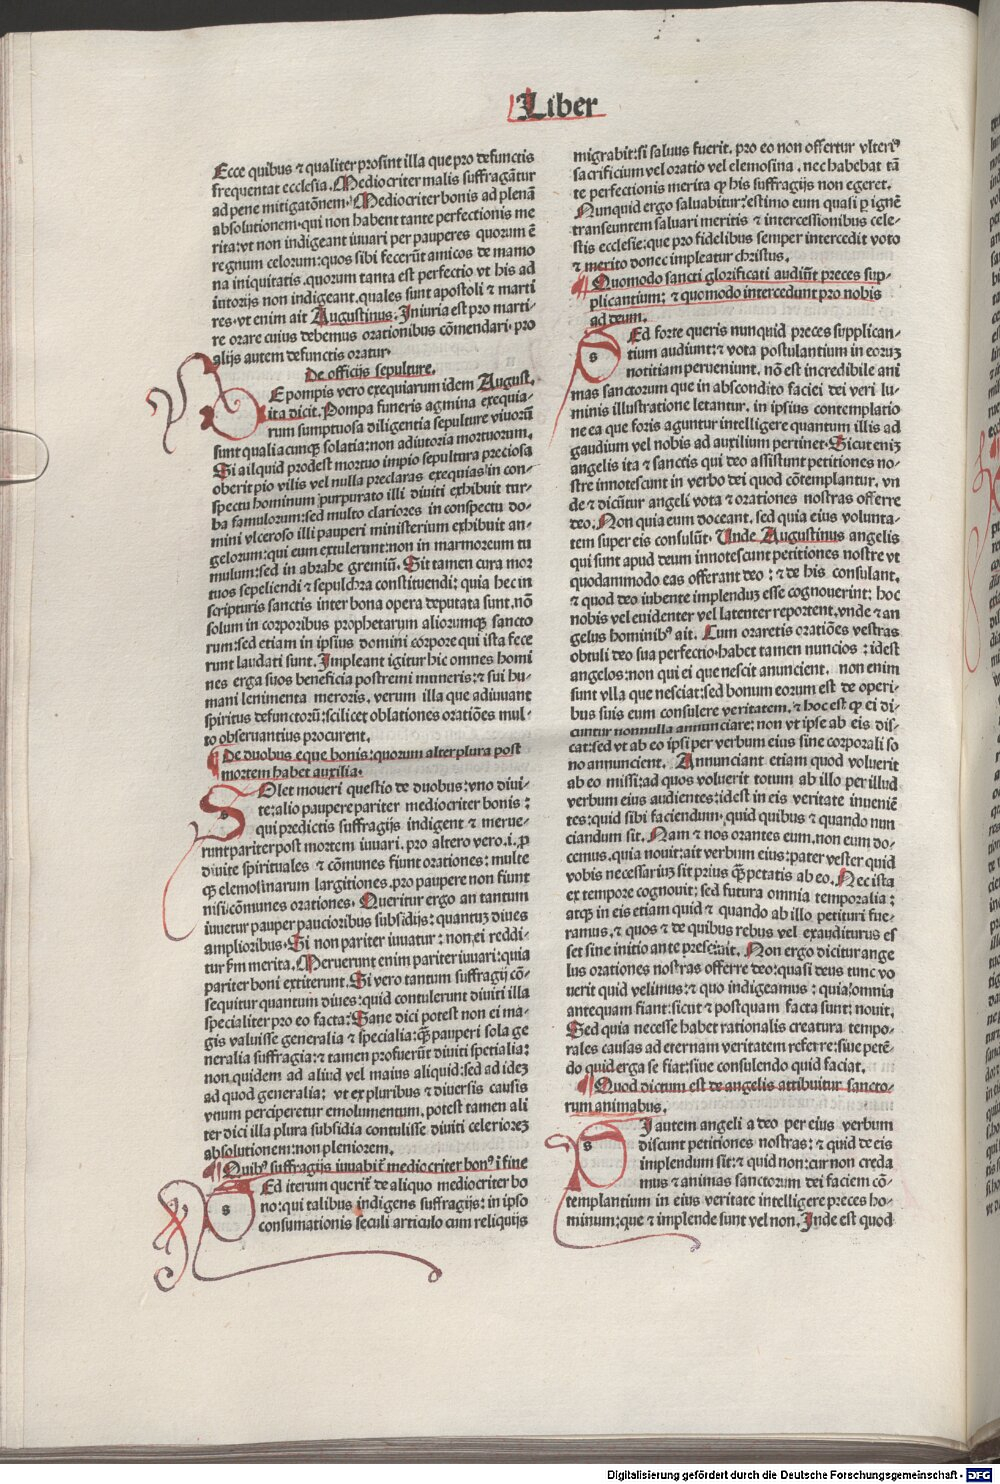 Liber
Ecce quibus ⁊ qualiter prosint illa que pro defunctis
frequentat ecclesia. Mediocriter malis suffragātur
ad pene mitigatōnem. Mediocriter bonis ad plenā
absolutionem. qui non habent tante perfectionis me
rita: vt non indigeant iuuari per pauperes quorum ē
regnum celorum: quos sibi fecerūt amicos de mamo
na iniquitatis. quorum tanta est perfectio vt his ad
iutorijs non indigeant. quales sunt apostoli ⁊ marti
res. vt enim ait Augustinus. Iniuria est pro marti-
re orare cuius debemus orationibus cōmendari. pro
alijs autem defunctis oratur.
De officijs sepulture.
E pompis vero exequiarum idem August.
ita dicit. Pompa funeris agmina exequia-
rum sumptuosa diligentia sepulture viuorū
sunt qualiacunqꝫ solatia: non adiutoria mortuorum.
Si ailquid prodest mortuo impio sepultura preciosa
oberit pio vilis vel nulla preclaras exequias in con-
spectu hominum purpurato illi diuiti exhibuit tur-
ba famulorum: sed multo clariores in conspectu do-
mini vlceroso illi pauperi ministerium exhibuit an-
gelorum: qui eum extulerunt: non in marmoreum tu
mulum: sed in abrahe gremiū. Sit tamen cura mor
tuos sepeliendi ⁊ sepulchra constituendi: quia hec in
scripturis sanctis inter bona opera deputata sunt. nō
solum in corporibus prophetarum aliorumqꝫ sancto
rum: sed etiam in ipsius domini corpore qui ista fece
runt laudati sunt. Impleant igitur hic omnes homi
nes erga suos beneficia postremi muneris: ⁊ sui hu-
mani lenimenta meroris. verum illa que adiuuant
spiritus defunctorū: scilicet oblationes oratiōes mul-
to obseruantius procurent.
De duobus eque bonis: quorum alter plura post
mortem habet auxilia.
Olet moueri questio de duobus: vno diui-
s te: alio paupere pariter mediocriter bonis:
qui predictis suffragijs indigent ⁊ merue-
runt pariter post mortem iuuari. pro altero vero. i. p
diuite spirituales ⁊ cōmunes fiunt orationes: multe
qꝫ elemosinarum largitiones. pro paupere non fiunt
nisi cōmunes orationes. Queritur ergo an tantum
iuuetur pauper paucioribus subsidijs: quantuꝫ diues
amplioribus. Si non pariter iuuatur: non ei reddi-
tur fm merita. Meruerunt enim pariter iuuari: quia
pariter boni extiterunt. Si vero tantum suffragij cō-
sequitur quantum diues: quid contulerunt diuiti illa
specialiter pro eo facta: Sane dici potest non ei ma-
gis valuisse generalia ⁊ specialia: qꝫ pauperi sola ge
neralia suffragia: ⁊ tamen profuerūt diuiti spetialia:
non quidem ad aliud vel maius aliquid: sed ad ideꝫ
ad quod generalia: vt ex pluribus ⁊ diuersis causis
vnum perciperetur emolumentum. potest tamen ali
ter dici illa plura subsidia contulisse diuiti celerioreꝫ
absolutionem: non pleniorem.
Quibꝰ suffragijs iuuabit̄ mediocriter bonꝰ i fine
Ed iterum querit̄ de aliquo mediocriter bo
s no: qui talibus indigens suffragijs: in ipso
consumationis seculi articulo cum reliquijs
migrabit: si saluus fuerit. pro eo non offertur vlteriꝰ
sacrificium vel oratio vel elemosina. nec habebat tā
te perfectionis merita qp his suffragijs non egeret.
Nunquid ergo saluabitur: estimo eum quasi p ignē
transeuntem saluari meritis ⁊ intercessionibus cele-
stis ecclesie: que pro fidelibus semper intercedit voto
⁊ merito donec impleatur christus.
Quomodo sancti glorificati audiūt preces sup-
plicantium: ⁊ quomodo intercedunt pro nobis
ad deum.
Ed forte queris nunquid preces supplican-
s tium audiunt: ⁊ vota postulantium in eoruꝫ
notitiam perueniunt. nō est incredibile ani
mas sanctorum que in abscondito faciei dei veri lu-
minis illustratione letantur. in ipsius contemplatio
ne ea que foris aguntur intelligere quantum illis ad
gaudium vel nobis ad auxilium pertinet. Sicut eniꝫ
angelis ita ⁊ sanctis qui deo assistunt petitiones no-
stre innotescunt in verbo dei quod cōtemplantur. vn
de ⁊ dicūtur angeli vota ⁊ orationes nostras offerre
deo. Non quia eum doceant. sed quia eius volunta-
tem super eis consulūt. Unde Augustinus angelis
qui sunt apud deum innotescunt petitiones nostre vt
quodammodo eas offerant deo: ⁊ de his consulant.
⁊ quod deo iubente implenduꝫ esse cognouerint: hoc
nobis vel euidenter vel latenter reportent. vnde ⁊ an
gelus hominibꝰ ait. Cum oraretis oratiōes vestras
obtuli deo sua perfectio. habet tamen nuncios: idest
angelos: non qui ei que nescit anuncient. non enim
sunt vlla que nesciat: sed bonum eorum est de operi-
bus suis eum consulere veritatem. ⁊ hoc est qp ei di-
cuntur nonnulla annunciare: non vt ipse ab eis dis-
cat: sed vt ab eo ipsi per verbum eius sine corporali so
no annuncient. Annunciant etiam quod voluerit
ab eo missi: ad quos voluerit totum ab illo per illud
verbum eius audientes: idest in eis veritate inueniē
tes: quid sibi faciendum. quid quibus ⁊ quando nun
ciandum sit. Nam ⁊ nos orantes eum. non eum do-
cemus. quia nouit: ait verbum eius: pater vester quid
vobis necessarius sit prius qꝫ petatis ab eo. Nec ista
ex tempore cognouit: sed futura omnia temporalia:
atqꝫ in eis etiam quid ⁊ quando ab illo petituri fue-
ramus. ⁊ quos ⁊ de quibus rebus vel exauditurus es
set sine initio ante presciuit. Non ergo dicitur ange
lus orationes nostras offerre deo: quasi deus tunc vo
uerit quid velimus: ⁊ quo indigeamus: quia omnia
antequam fiant: sicut ⁊ postquam facta sunt: nouit.
Sed quia necesse habet rationalis creatura tempo-
rales causas ad eternam veritatem referre: siue petē-
do quid erga se fiat: siue consulendo quid faciat.
Quod dictum est de angelis attibuitur sancto-
rum animabus.
I autem angeli a deo per eius verbum
s discunt petitiones nostras: ⁊ quid de eis
implendum sit: ⁊ quid non: cur non creda
mus ⁊ animas sanctorum dei faciem cō-
templantium in eius veritate intelligere preces ho-
minum: que ⁊ implende sunt vel non. Inde est quod
Digitalisierung gefördert durch die Deutsche Forschungsgemeinschaft - DFG